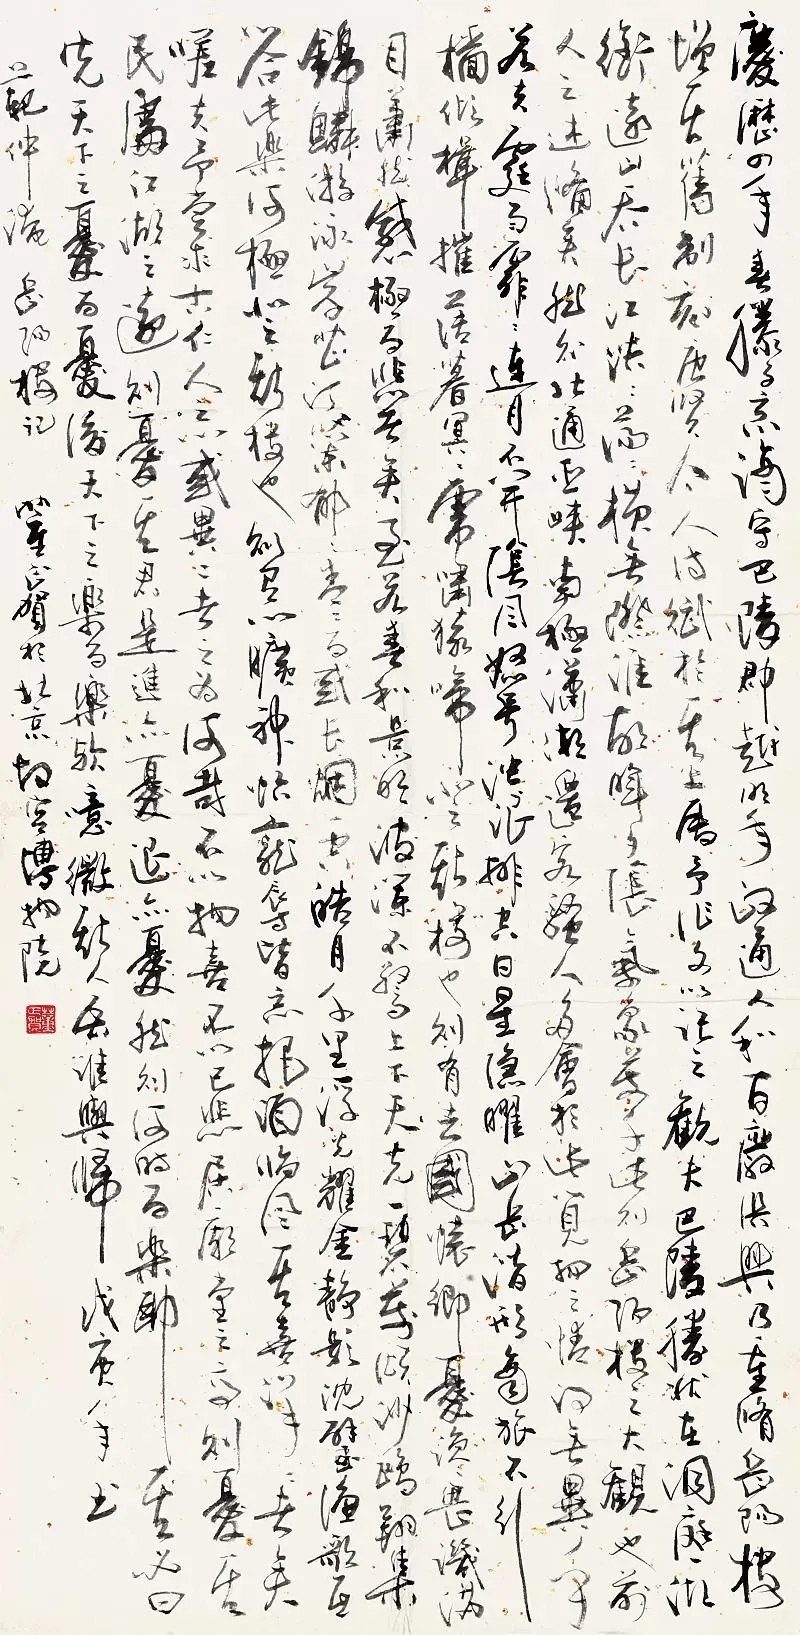 慶歷四年春滕子京謫守巴陵郡越明年政通人和百廢俱興乃重脩岳陽樓
增其舊制刻唐賢今人詩賦於其上屬予作文以記之觀夫巴陵勝狀在洞庭一湖
銜遠山吞長江浩浩蕩蕩橫無際涯朝暉夕陰氣象萬千此則岳陽樓之大觀也前
人之述備矣然則北通巫峽南極瀟湘遷客騷人多會於此覽物之情得無異乎
若夫霪雨霏霏連月不開陰風怒號濁浪排空日星隱曜山岳潛形商旅不行
檣傾楫摧薄暮冥冥虎嘯猿啼登斯樓也則有去國懷鄉憂讒畏譏滿
目蕭然感極而悲者矣至若春和景明波瀾不驚上下天光一碧萬頃沙鷗翔集
錦鱗游泳岸芷汀蘭郁郁青青而或長煙一空皓月千里浮光耀金靜影沈璧漁歌互
答此樂何極登斯樓也則有心曠神怡寵辱皆忘把酒臨風其喜洋洋者矣
嗟夫予嘗求古仁人之心或異二者之為何哉不以物喜不以己悲居廟堂之高則憂其
民處江湖之遠則憂其君是進亦憂退亦憂然則何時而樂耶其必曰
先天下之憂而憂後天下之樂而樂歟噫微斯人吾誰與歸 戊年書
范仲淹岳陽樓記 董正賀於北京故宮博物院
董正賀